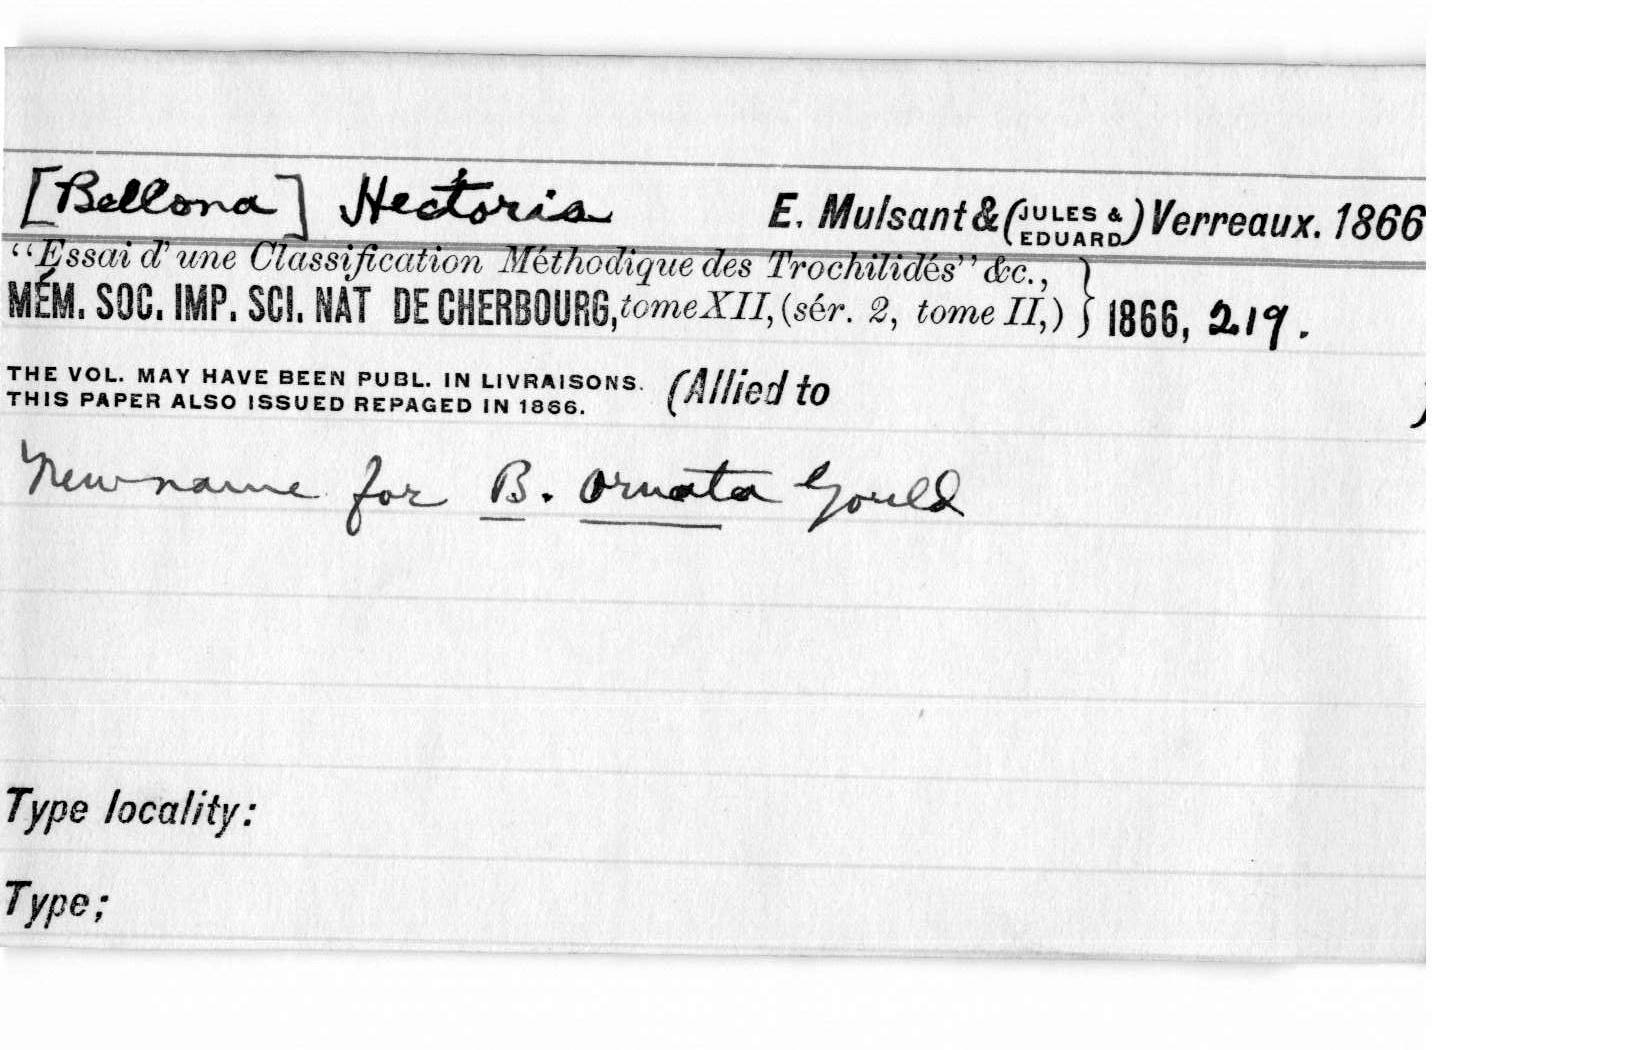 [Bellona] Hectoria E. Mulsant & (JULES & EDUARD) Verreaux. 1866
“Essai d’ une Classification Méthodique des Trochilidés” &c., }
MÉM. SOC. IMP. SCI. NAT DE CHERBOURG, tome XII, (sér. 2, tome II,) } 1866, 219.
THE VOL. MAY HAVE BEEN PUBL. IN LIVRAISONS.
THIS PAPER ALSO ISSUED REPAGED IN 1866. (Allied to )
New name for B. ornata Gould
Type locality:
Type;